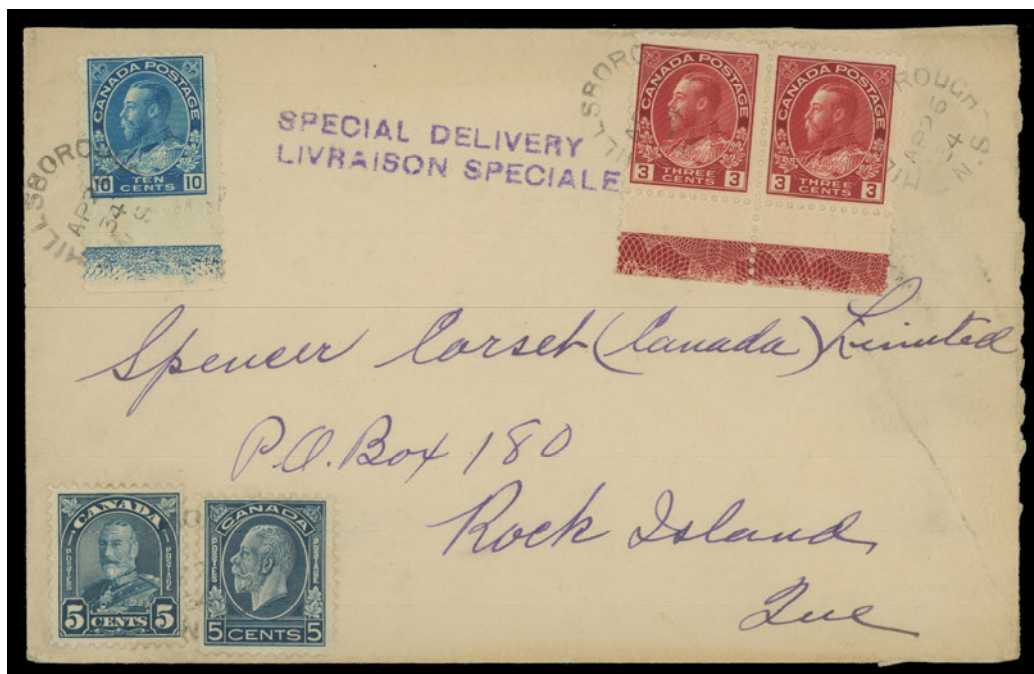 CANADA POSTAGE
10 TEN CENTS 10
HILLSBORO
AP
34
SPECIAL DELIVERY
LIVRAISON SPECIALE
CANADA POSTAGE
3 THREE CENTS 3
CANADA POSTAGE
3 THREE CENTS 3
LLSBORO
ROUGH
AP 26
34
N.S.
Spencer Corset (Canada) Limited
P.O. Box 180
Rock Island
Que
CANADA
POSTES POSTAGE
5 CENTS 5
CANADA
POSTES POSTAGE
5 CENTS 5